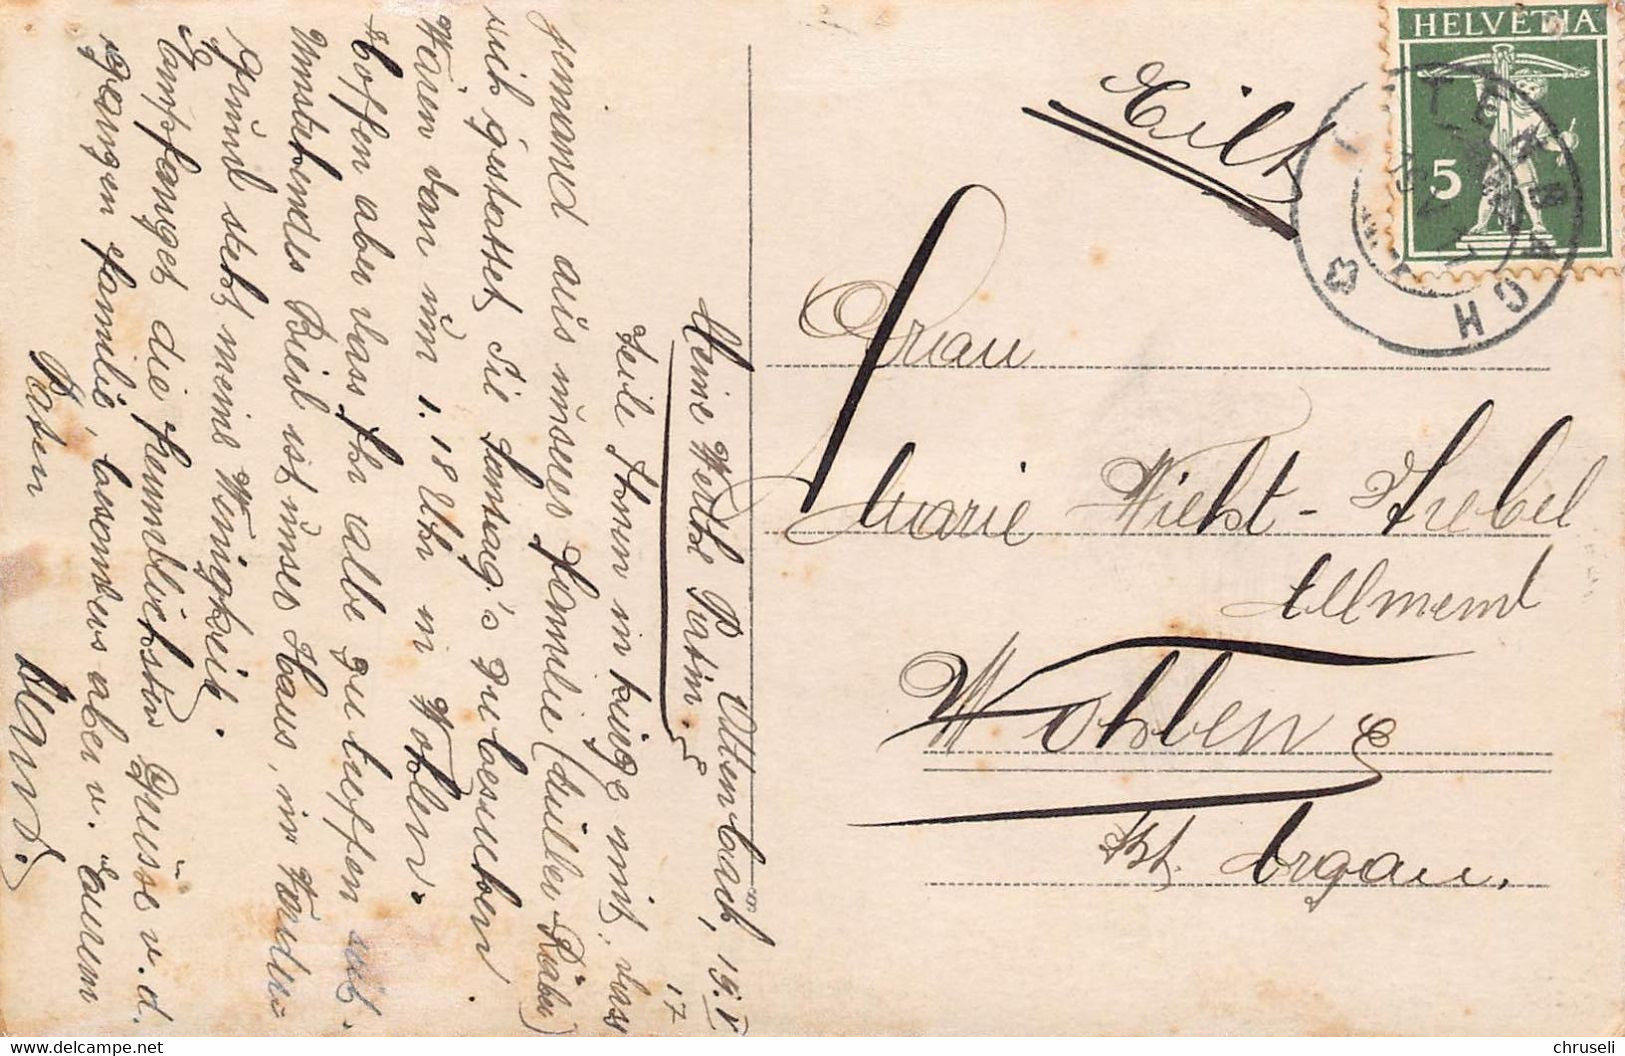 HELVETIA
5
Eilt
Frau
Marie Wicht-Strebel
Allmend
Wohlen
Kt. Argau.
Uttenbach, 19. V 17
Meine Werthe Patin.
Teile Ihnen in kürze mit, dass
jemand aus unserer Familie
sich gestattet Sie Samstag's zu besuchen.
Wären dan um 1.18 Uhr in Wohlen.
Hoffen aber dass Ihr alle zu treffen seit.
Umstehendes Bild ist unser Haus, im Vorder-
grund steht meine Wenigkeit.
Empfanget die freundlichsten Grüsse v. d.
ganzen Familie, besonders aber v. Eurem
Paten
chruseli